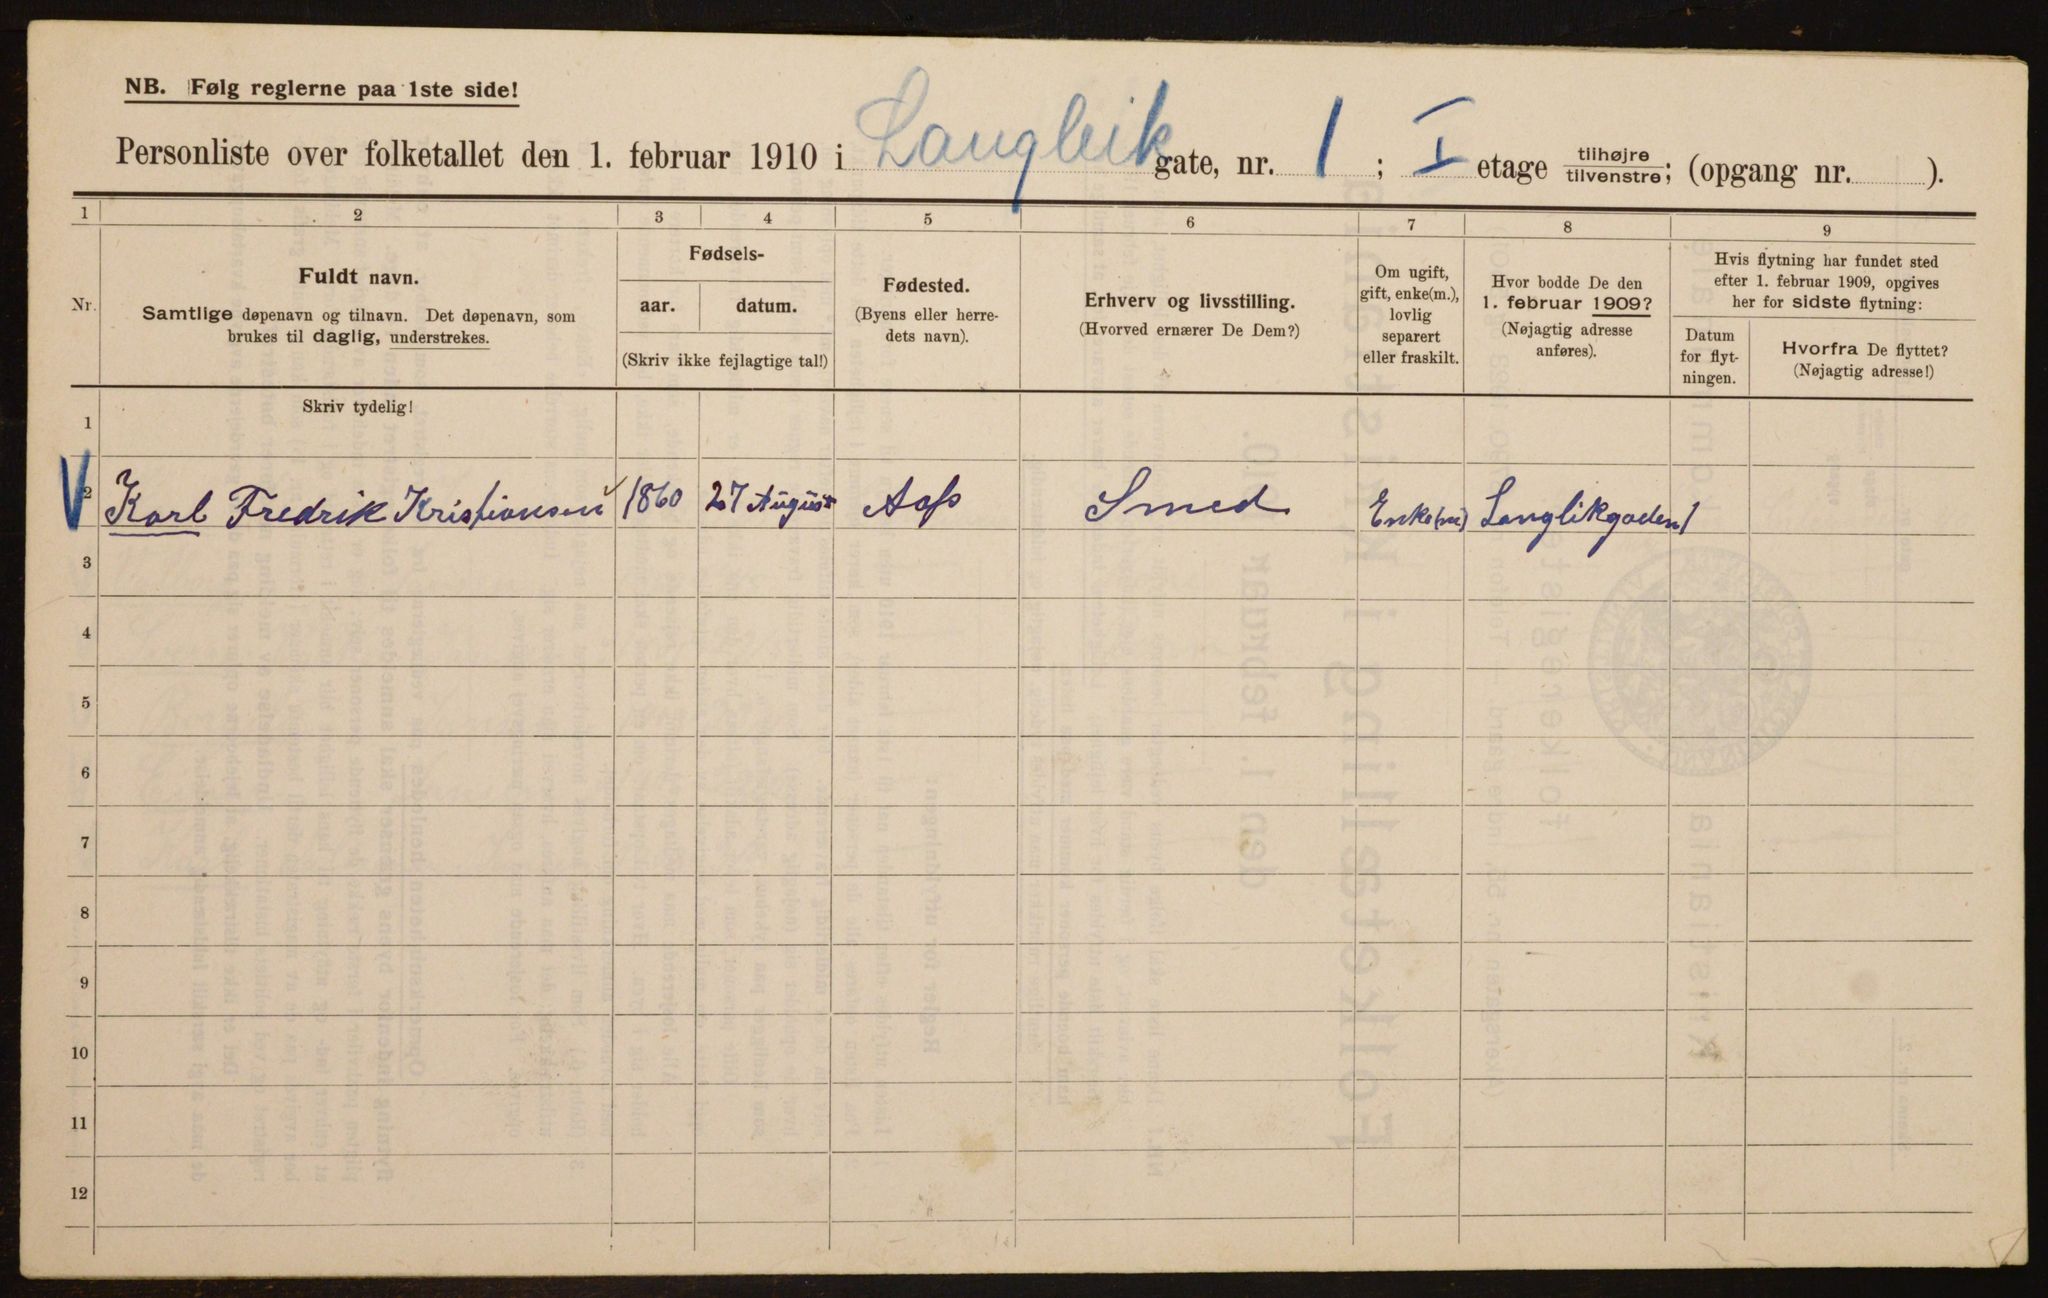 NB. Følg reglerne paa 1ste side!
Personliste over folketallet den 1. februar 1910 i Langleik gate, nr. 1; I etage tilhøjre/tilvenstre; (opgang nr. ).
1 2 3 4 5 6 7 8 9
Nr.
Fuldt navn.
Samtlige døpenavn og tilnavn. Det døpenavn, som
brukes til daglig, understrekes.
Fødsels-
aar. datum.
(Skriv ikke fejlagtige tal!)
Fødested.
(Byens eller herre-
dets navn).
Erhverv og livsstilling.
(Hvorved ernærer De Dem?)
Om ugift,
gift, enke(m.),
lovlig
separert
eller fraskilt.
Hvor bodde De den
1. februar 1909?
(Nøjagtig adresse
anføres).
Hvis flytning har fundet sted
efter 1. februar 1909, opgives
her for sidste flytning:
Datum
for flyt-
ningen.
Hvorfra De flyttet?
(Nøjagtig adresse!)
Skriv tydelig!
1
2 Karl Fredrik Kristiansen 1860 27 August Smed Enke(m) Langlikgaden 1
3
4
5
6
7
8
9
10
11
12